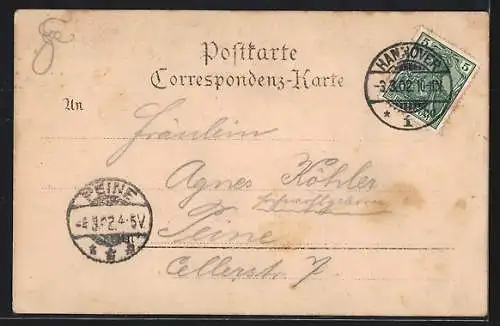 Postkarte
Correspondenz-Karte
5 5
HANNOVER
-3.3.02.10-11V.
* 1 *
An
Fräulein
Agnes Köhler
Peine
Cellerstr. 7
PEINE
3.02.4-5V.
* * *